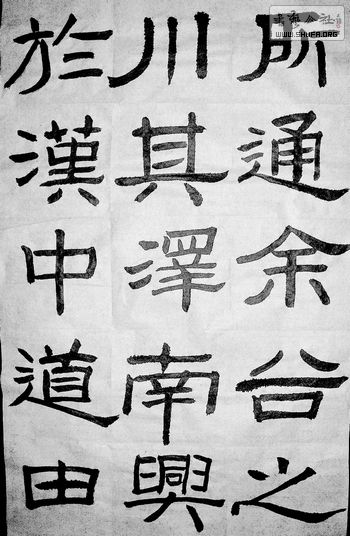 所通余谷之
川其澤南興
於漢中道由
書藝公社
WWW.SHUFA.ORG